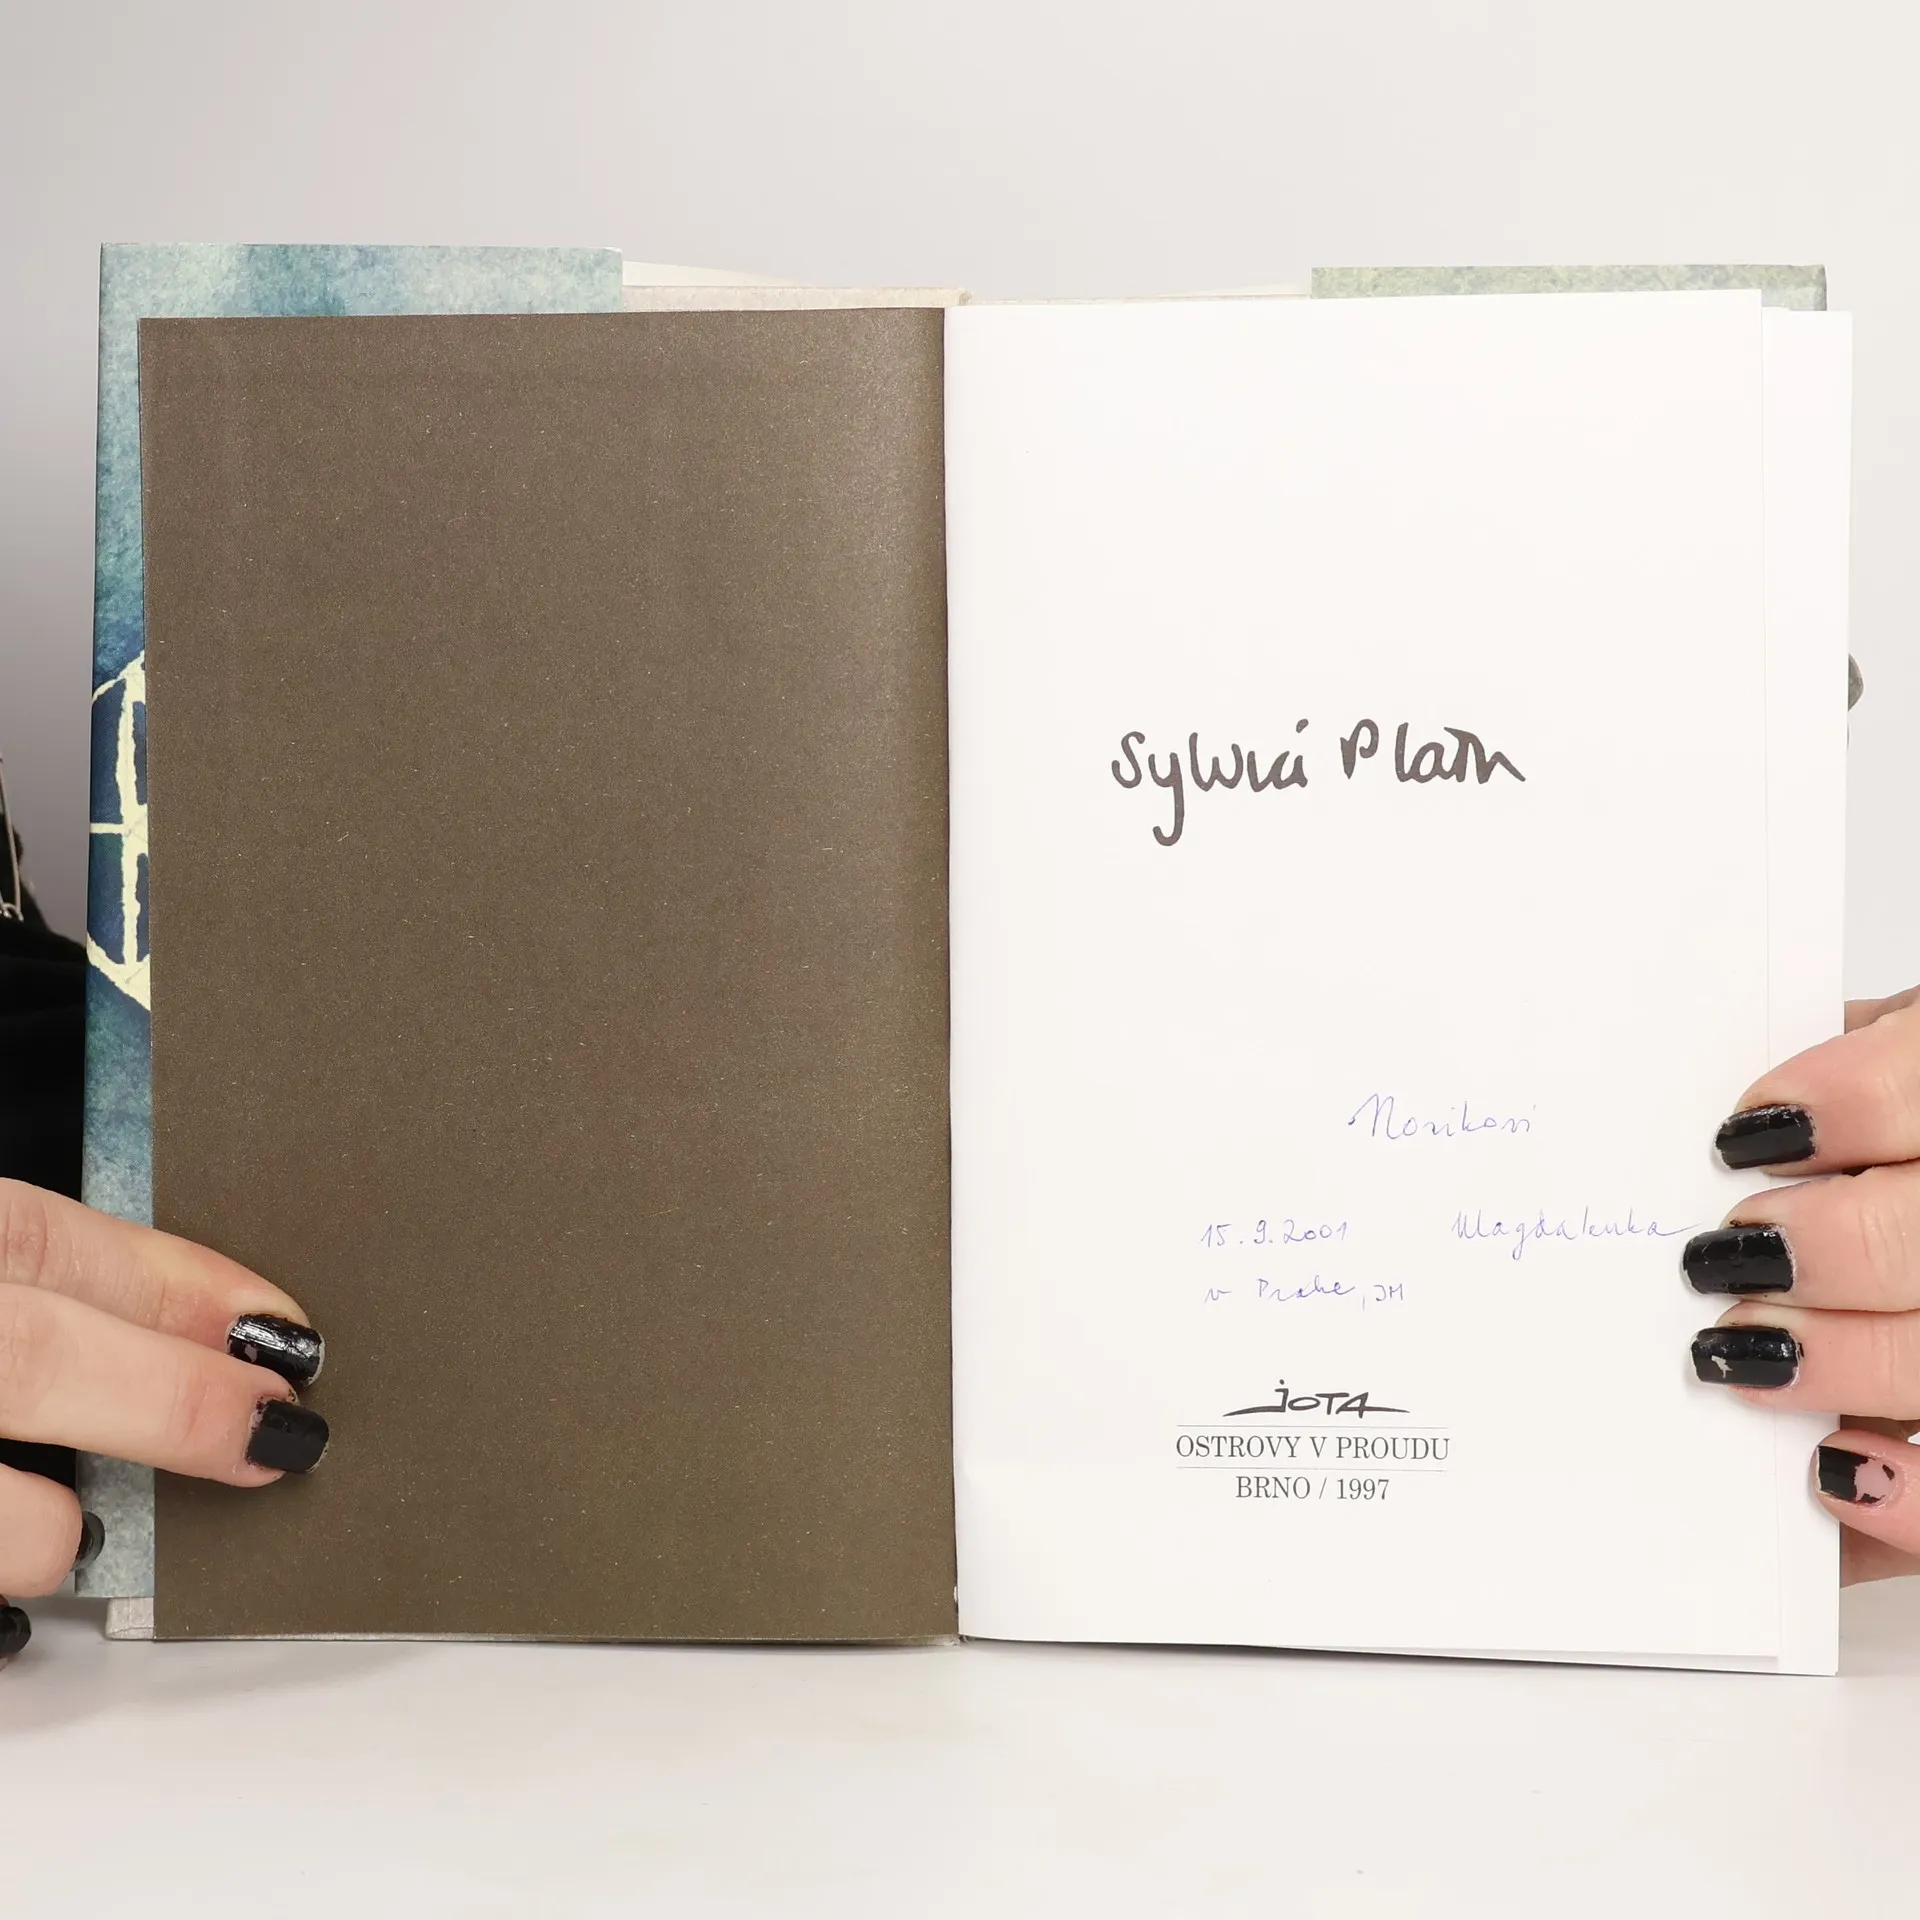 Sylvia Plath
15.9.2001 Magdalenka
v Praze, JM
JOTA
OSTROVY V PROUDU
BRNO / 1997